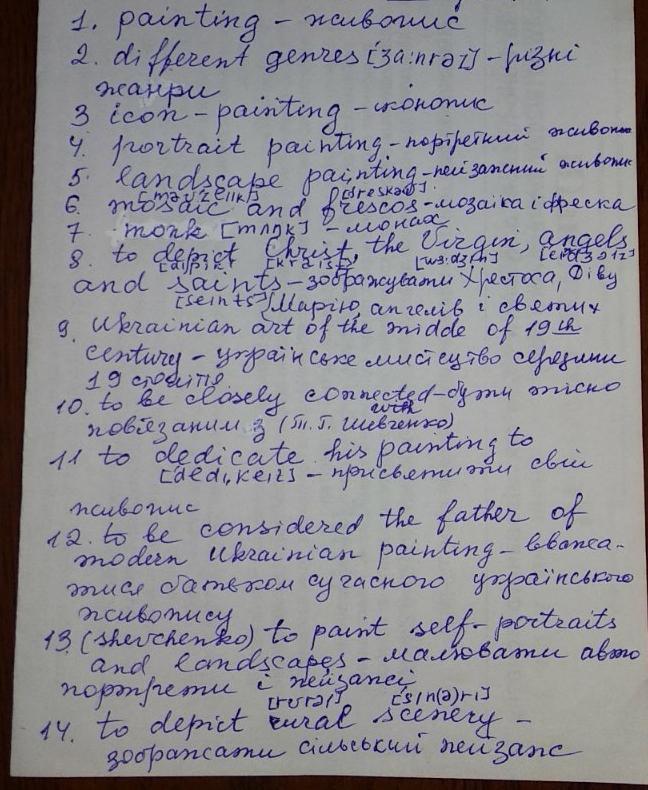 1. painting – живопис
2. different genres [ʒɑ:nrəz] – різні
жанри
3 icon – painting – іконопис
4. portrait painting – портретний живопис
5. landscape painting – пейзажний живопис
[freskəʊz]
6. mosaic and frescos – мозаїка і фреска
7. monk [mʌŋk] – монах
8. to depict Christ, the Virgin, angels
[kraɪst]
and saints – зображувати Христоса, Діву
[seɪnts] Марію, ангелів і святих
9. Ukrainian art of the midde of 19th
century – українське мистецтво середини
19 століття
10. to be closely connected – бути тісно
with
пов'язаним з (Т. Г. Шевченко)
11 to dedicate his painting to
– присвятити свій
живопис
12. to be considered the father of
modern Ukrainian painting – вважа-
тися батьком сучасного українського
живопису
13. (Shevchenko) to paint self-portraits
and landscapes – малювати авто
портрети і пейзажі
[rʊrəl] [si:n(ə)ri]
14. to depict rural scenery –
зображати сільський пейзаж